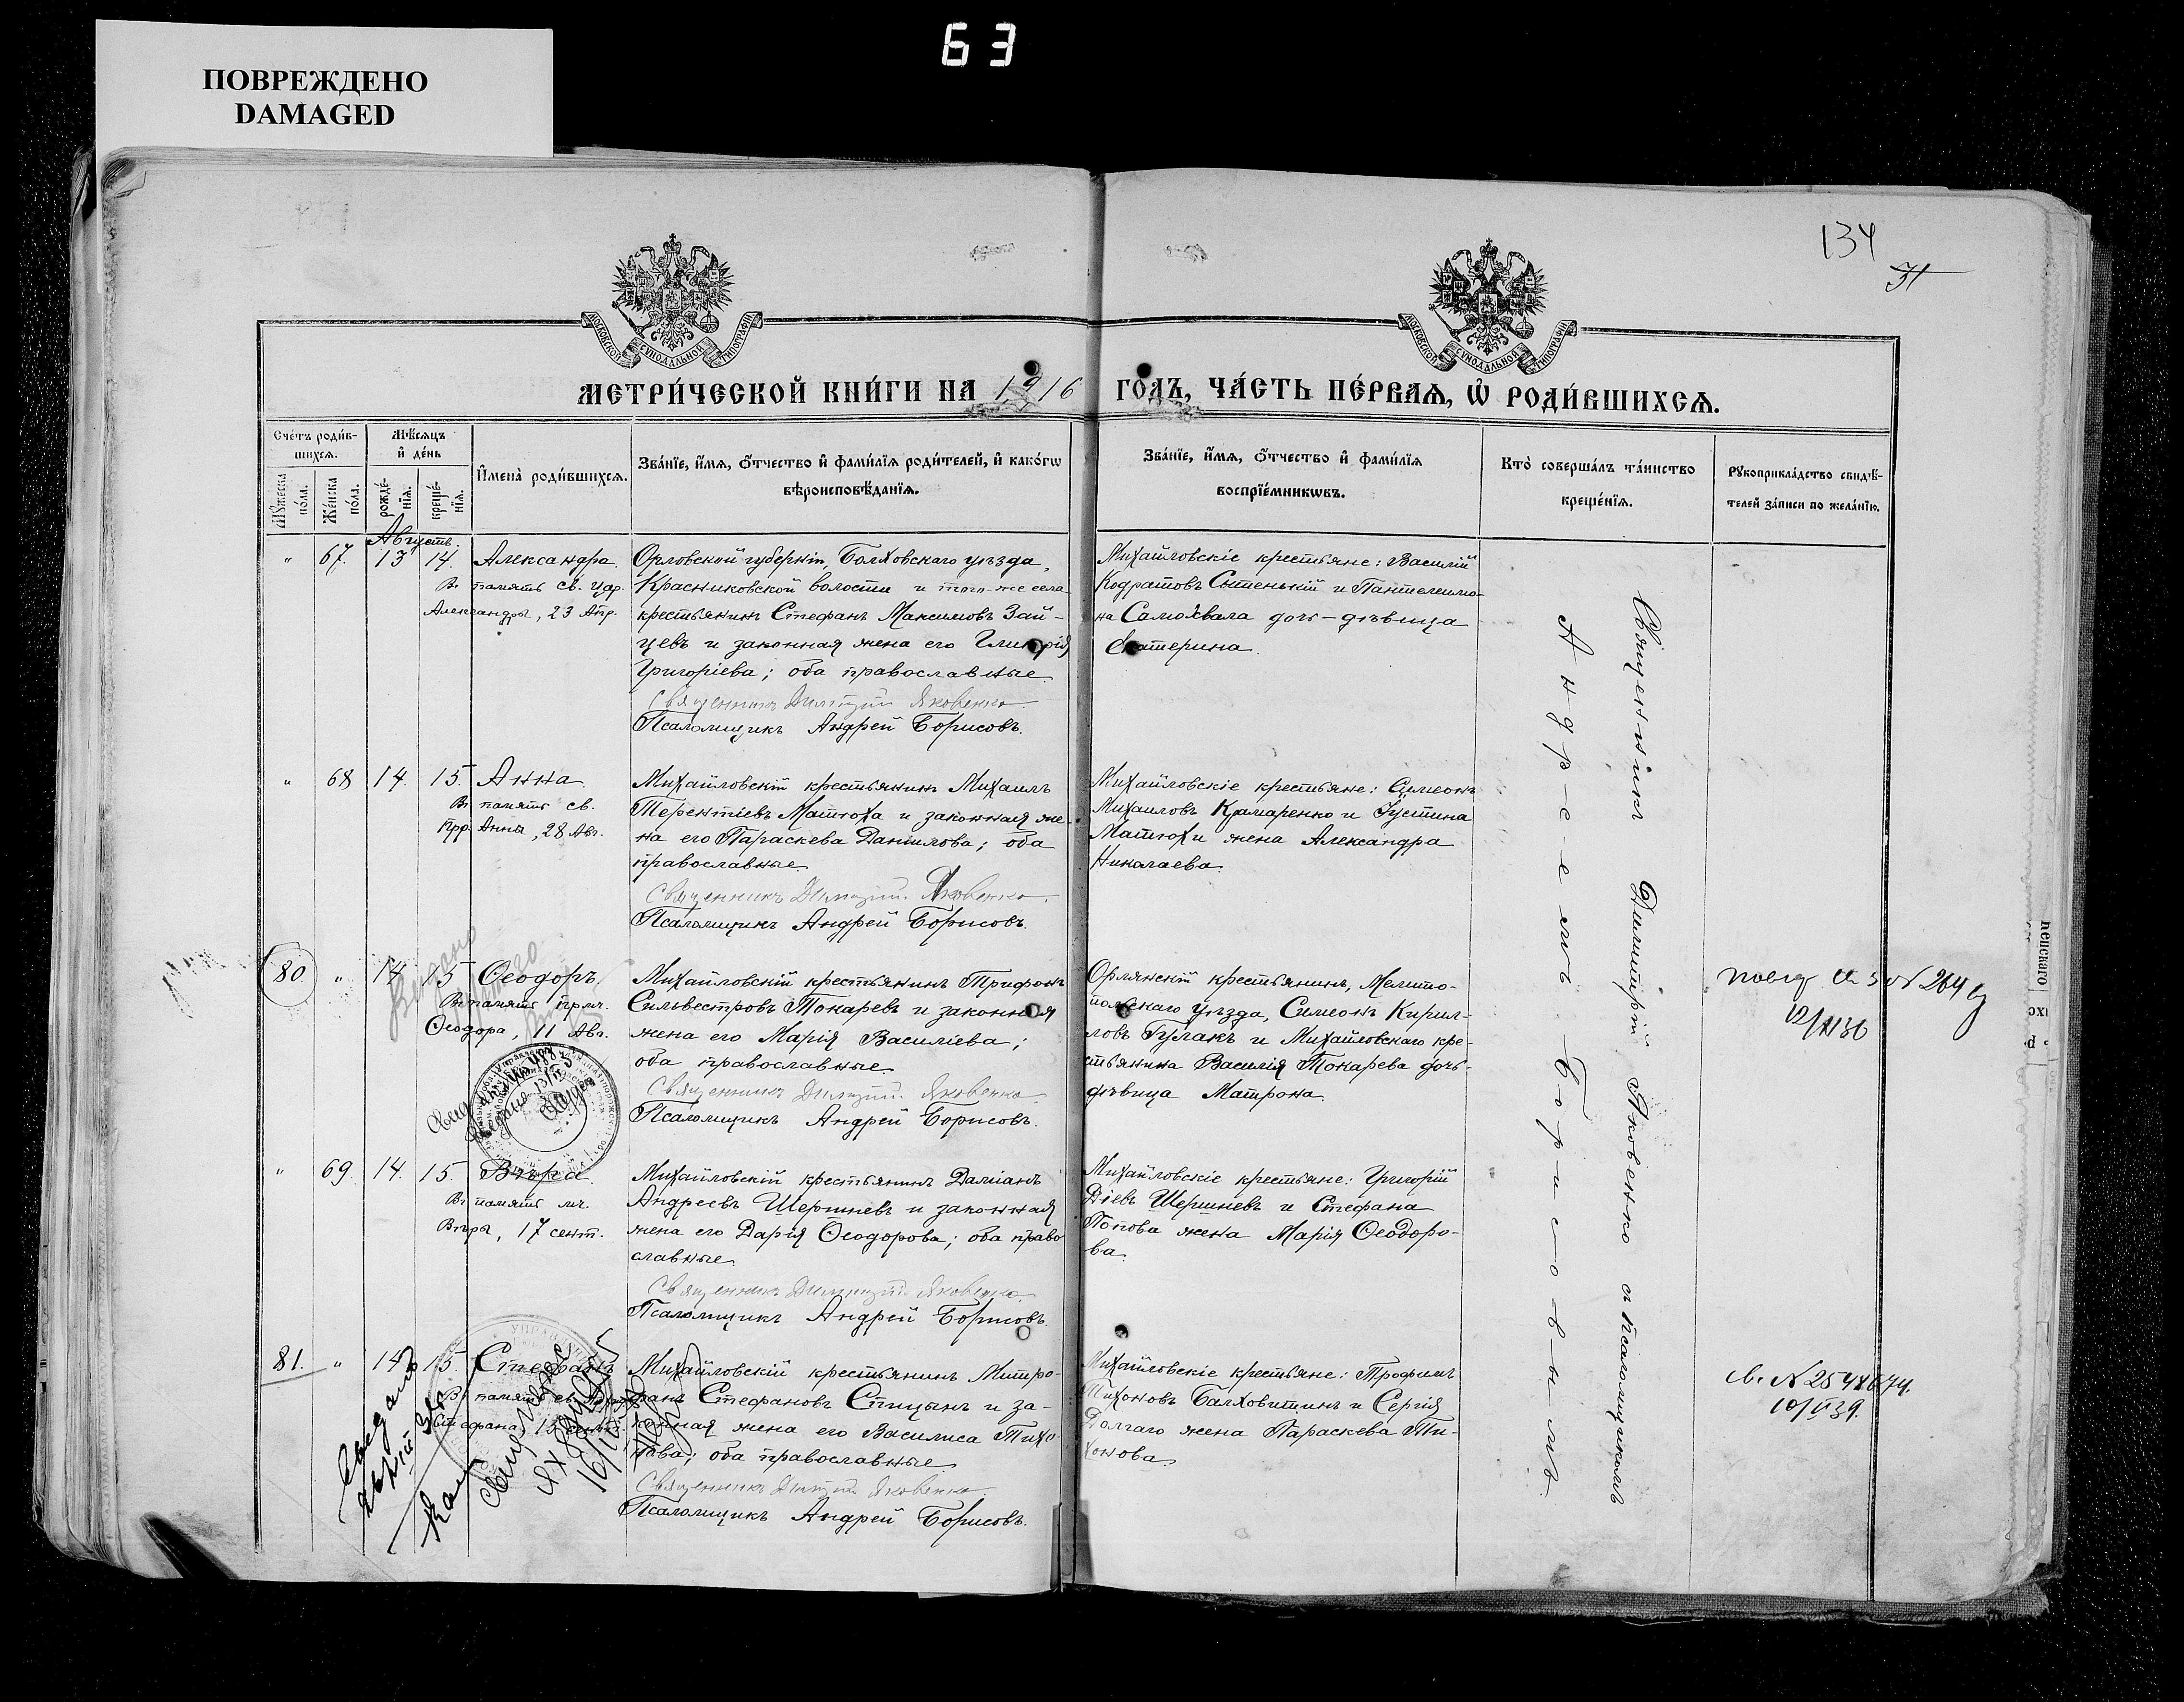 63
ПОВРЕЖДЕНО
DAMAGED
134
МОСКОВСКОЙ СѴНОДАЛЬНОЙ ТИПОГРАФІИ
МОСКОВСКОЙ СѴНОДАЛЬНОЙ ТИПОГРАФІИ
МЕТРИ́ЧЕСКОЙ КНИ́ГИ НА 1916 ГОДЪ, ЧА́СТЬ ПЕ́РВАѦ, Ѡ҆ РОДИ́ВШИХСѦ.
Сче́тъ роди́в-
шихсѧ.
Мѣ́сѧцъ
и҆ де́нь
Мꙋ́жеска
по́ла.
Же́нска
по́ла.
рожде́-
нїѧ.
креще́-
нїѧ.
И҆мена̀ роди́вшихсѧ.
Зва́нїе, и҆́мѧ, ѻ҆́тчество и҆ фами́лїѧ роди́телей, и҆ како́гѡ
вѣроисповѣ́данїѧ.
Зва́нїе, и҆́мѧ, ѻ҆́тчество и҆ фами́лїѧ
воспрїе́мникѡвъ.
Кто̀ соверша́лъ та́инство
креще́нїѧ.
Рꙋкоприкла́дство свидѣ́-
телей за́писи по жела́нїю.
Августъ.
" 67. 13 14. Александра.
Въ память св. цар.
Александры, 23 Апр.
Орловской губерніи, Болховскаго уѣзда,
Красниковской волости и того-же села
крестьянинъ Стефанъ Максимовъ Зай-
цевъ и законная жена его Гликерія
Григоріева; оба православные.
Священникъ Димитрій Яковенко
Псаломщикъ Андрей Борисовъ.
Михайловскіе крестьяне: Василій
Кодратовъ Сытенькій и Пантелеимо-
на Самохвала дочь-дѣвица
Екатерина.
Священникъ Димитрій Яковенко съ псаломщикомъ
Андреемъ Борисовымъ.
" 68 14. 15. Анна.
Въ память св.
прр. Анны, 28 Авг.
Михайловскій крестьянинъ Михаилъ
Терентіевъ Матюха и законная же-
на его Параскева Даніилова; оба
православные.
Священникъ Димитрій Яковенко.
Псаломщикъ Андрей Борисовъ.
Михайловскіе крестьяне: Симеонъ
Михаиловъ Крамаренко и Іустина
Матюхи жена Александра
Николаева.
80. " 14 15 Ѳеодоръ.
Въ память прмч.
Ѳеодора, 11 Авг.
Михайловскій крестьянинъ Трифонъ
Сильвестровъ Токаревъ и законная
жена его Марія Василіева;
оба православные.
Священникъ Димитрій Яковенко
Псаломщикъ Андрей Борисовъ.
Орлянскій крестьянинъ, Мелито-
польскаго уѣзда, Симеонъ Кирил-
ловъ Гулакъ и Михайловскаго кре-
стьянина Василія Токарева дочь-
дѣвица Матрона.
264
12/XI 36
" 69. 14. 15. Вѣра.
Въ память мч.
Вѣры, 17 сент.
Михайловскій крестьянинъ Даміанъ
Андреевъ Шершневъ и законная
жена его Дарія Ѳеодорова; оба право
славные.
Священникъ Димитрій Яковенко.
Псаломщикъ Андрей Борисовъ.
Михайловскіе крестьяне: Григорій
Діевъ Шершневъ и Стефана
Попова жена Марія Ѳеодоро-
ва.
81. " 14 15. Стефанъ
Въ память св.
Стефана, 15
Михайловскій крестьянинъ Митро-
фанъ Стефановъ Спицынъ и за-
конная жена его Василиса Тихо-
нова; оба православные.
Священникъ Димитрій Яковенко.
Псаломщикъ Андрей Борисовъ.
Михайловскіе крестьяне: Трофимъ
Тихоновъ Балховитинъ и Сергія
Долгаго жена Параскева Ти-
хонова.
10/V 39.